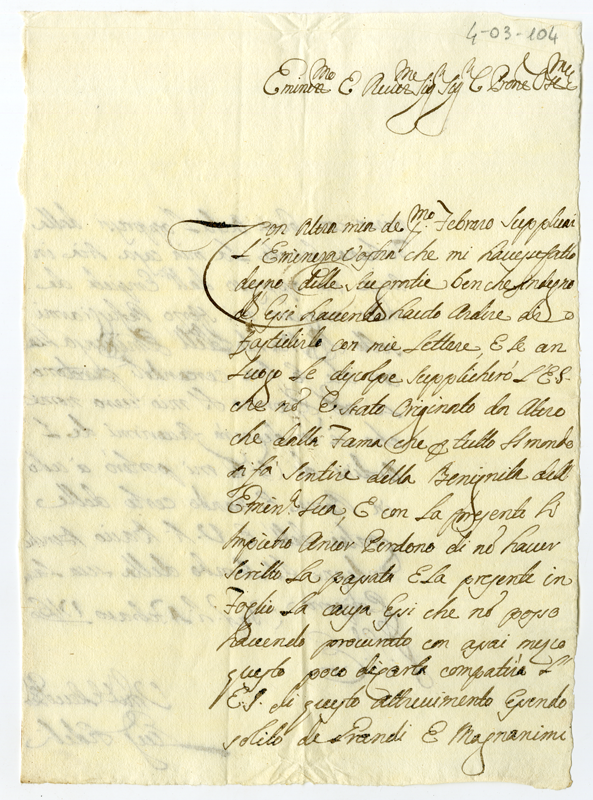 4-03-104
Emin.mo E Reuer.mo Sig.r Sig.r E Prone
Con Altra mia de Febraro Supplicai
L' Eminenza Vostra che mi hauesse fatto
degno delle sue gratie benche Indegno
d' esse hauendo hauto Ardire di
fastidirlo con mie lettere, E se an
luogo le discolpe supplicherò L' E.S.
che nõ E stato Originato da Altro
che dalla Fama che p tutto il mondo
si fà sentire della Benignità dell'
Emin.a Sua E con La presente li
Impietro Ancor Perdono di nõ hauer
scritto La passata E La presente in
Foglio La causa Esi che nõ posso
hauendo procurato con assai
questo poco di carta compatirà L'
E.S. di questo attreuimento Essendo
solito de Grandi E Magnanimi